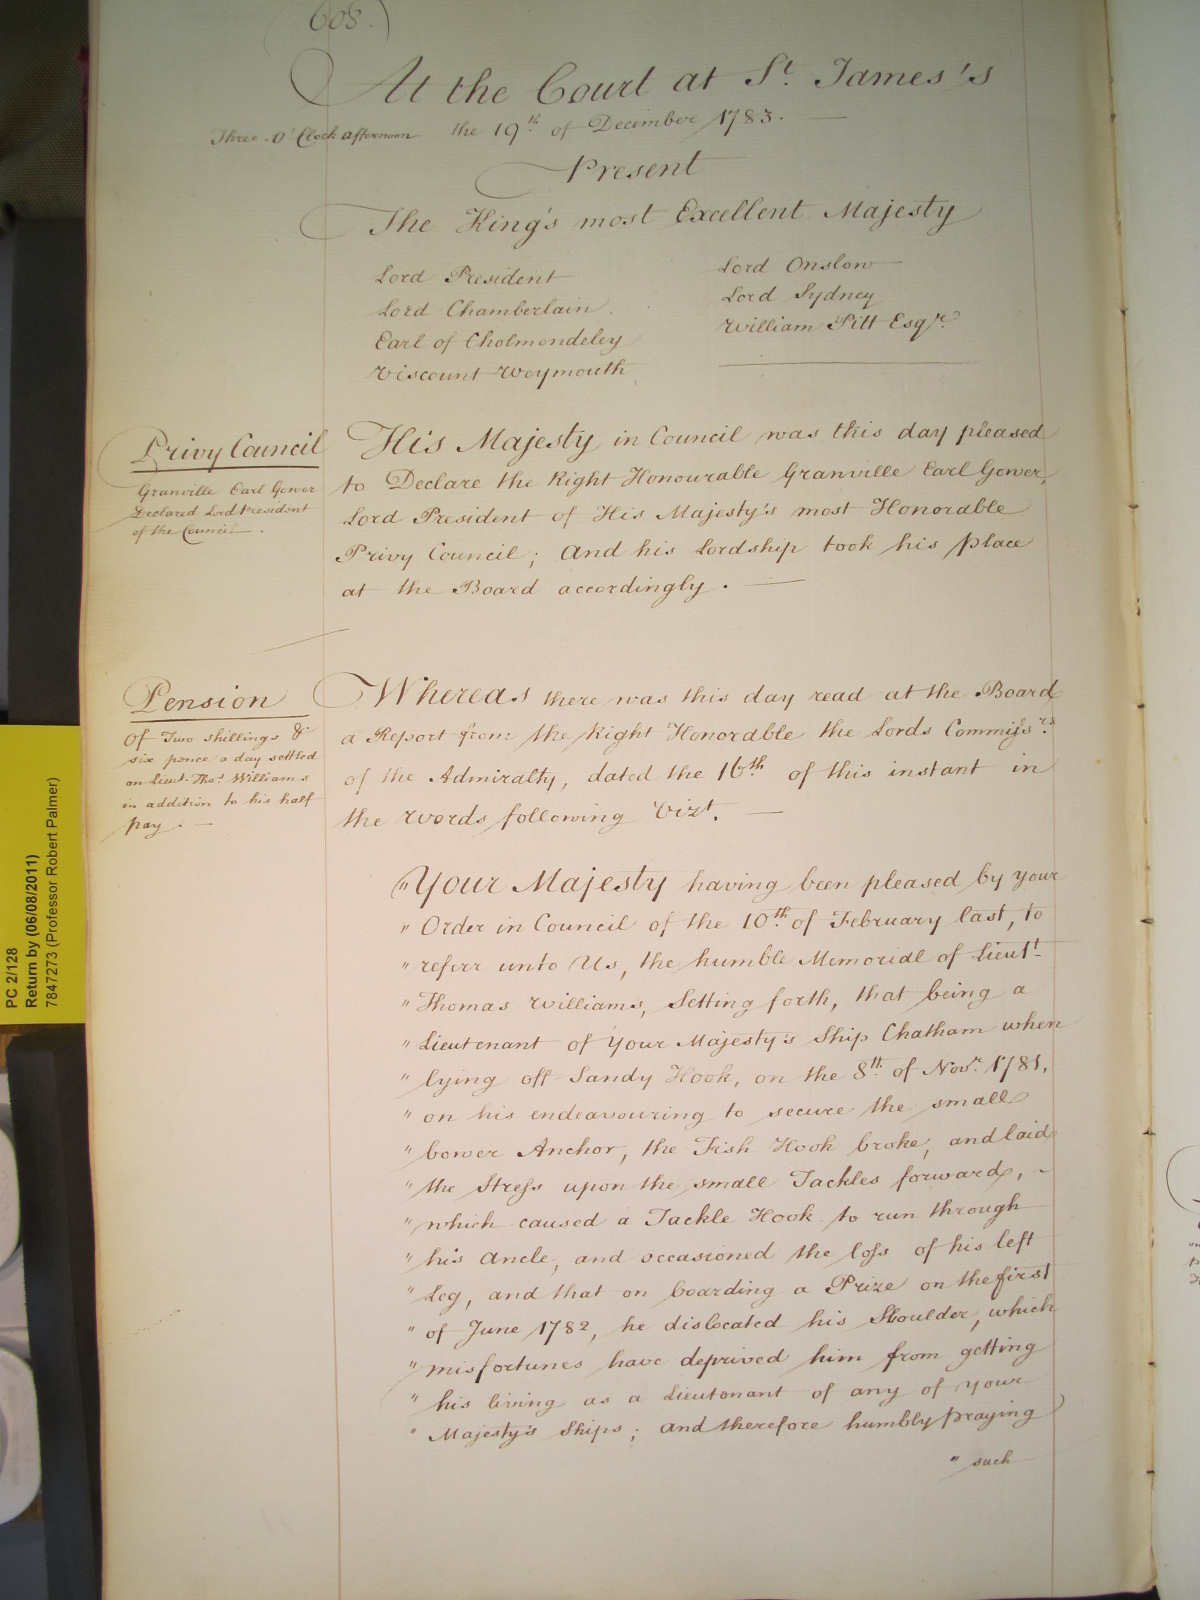 608.)
At the Court at St. James's
Three O'Clock afternoon the 19th of December 1783.
Present
The King's most Excellent Majesty
Lord President
Lord Chamberlain
Earl of Cholmondeley
Viscount Weymouth
Lord Onslow
Lord Sydney
William Pitt Esqr.
Privy Council
Granville Earl Gower
Declared Lord President
of the Council.
His Majesty in Council was this day pleased
to Declare the Right Honourable Granville Earl Gower,
Lord President of His Majesty's most Honorable
Privy Council; and his Lordship took his place
at the Board accordingly.
Pension
Of Two shillings &
six pence a day settled
on Lieut. Thos. Williams
in addition to his half
pay.
Whereas there was this day read at the Board
a Report from the Right Honorable the Lords Commissrs.
of the Admiralty, dated the 16th of this instant in
the words following Vizt.
"Your Majesty having been pleased by your
" Order in Council of the 10th of February last, to
" referr unto Us, the humble Memorial of Lieutt.
" Thomas Williams, Setting forth, that being a
" Lieutenant of Your Majesty's Ship Chatham when
" lying off Sandy Hook, on the 8th. of Novr. 1781,
" on his endeavouring to secure the small
" bower Anchor, the Fish Hook broke, and laid
" the Stress upon the small Tackles forward,
" which caused a Tackle Hook to run through
" his Ancle, and occasioned the loss of his left
" Leg, and that on boarding a Prize on the first
" of June 1782, he dislocated his Shoulder, which
" misfortunes have deprived him from getting
" his living as a Lieutenant of any of your
" Majesty's Ships; and therefore humbly praying
" such
PC 2/128
Return by (06/08/2011)
7847273 (Professor Robert Palmer)